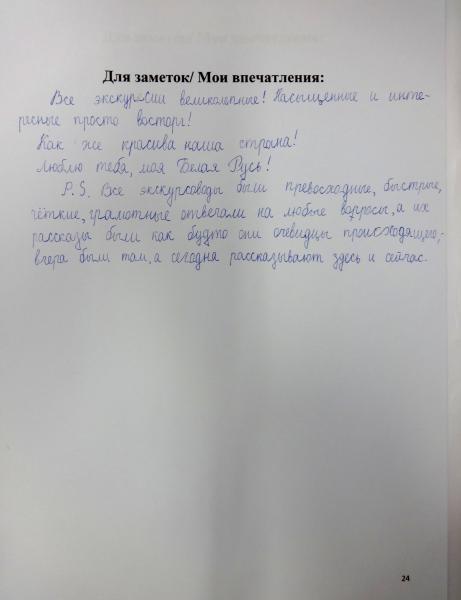 Для заметок/ Мои впечатления:
Все экскурсии великолепные! Насыщенные и инте-
ресные просто восторг!
Как же красива наша страна!
Люблю тебя, моя Белая Русь!
P.S. Все экскурсоводы были превосходные, быстрые,
чёткие, грамотные отвечали на любые вопросы, а их
рассказы были как будто они очевидцы происходящего,-
вчера были там, а сегодня рассказывают здесь и сейчас.
24